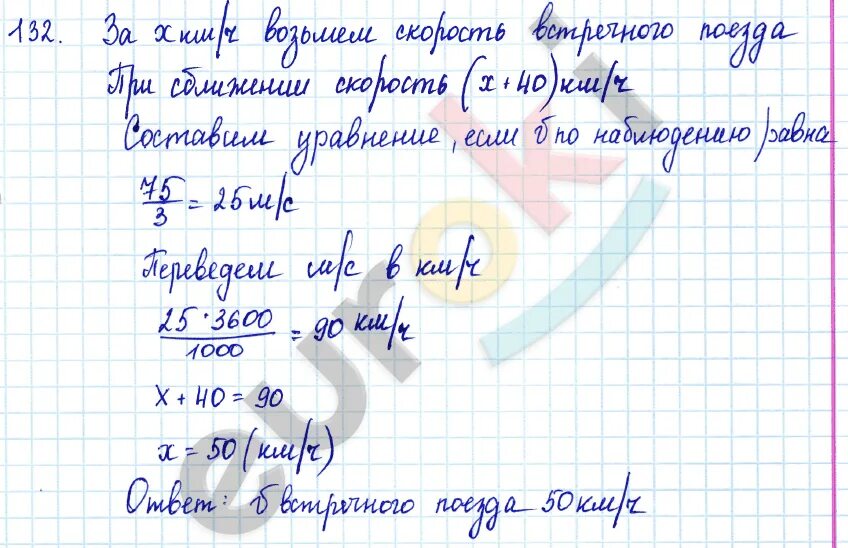 132. За x км/ч возьмем скорость встречного поезда
При сближении скорость (x+40) км/ч
Составим уравнение, если υ по наблюдению равна
75/3 = 25 м/с
Переведем м/с в км/ч
25·3600/1000 = 90 км/ч
x + 40 = 90
x = 50 (км/ч)
Ответ: υ встречного поезда 50 км/ч
euroki